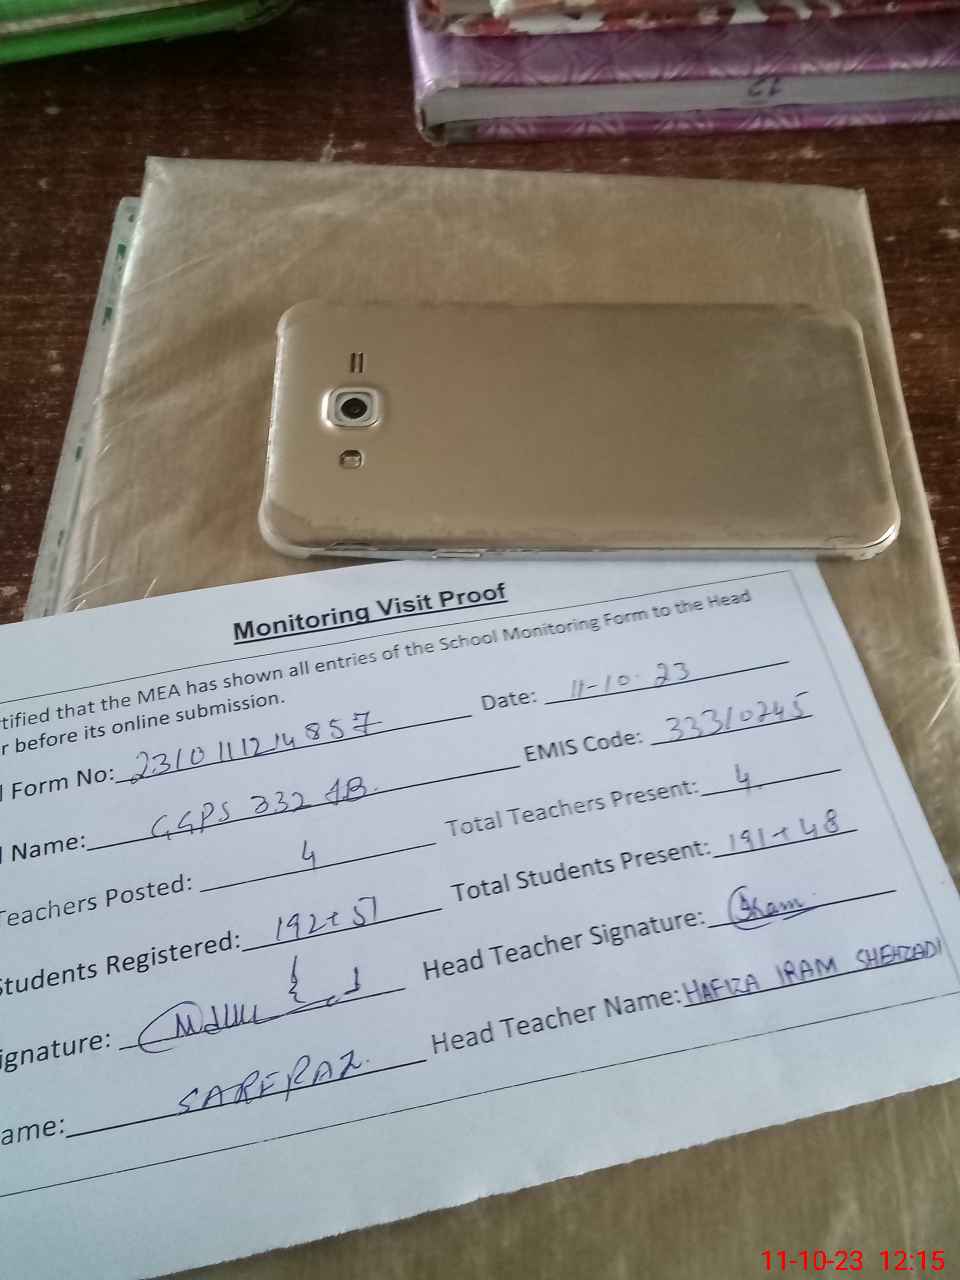 Monitoring Visit Proof
tified that the MEA has shown all entries of the School Monitoring Form to the Head
r before its online submission.
Form No: 2310111214857 Date: 11-10-23
Name: GGPS 332 Date EMIS Code: 33310245
Teachers Posted: 4 Total Teachers Present: 4
Students Registered: 192+51 Total Students Present: 191+48
ignature: Head Teacher Signature:
ame: SARFRAZ. Head Teacher Name: HAFIZA IRAM SHEHZADI
11-10-23 12:15